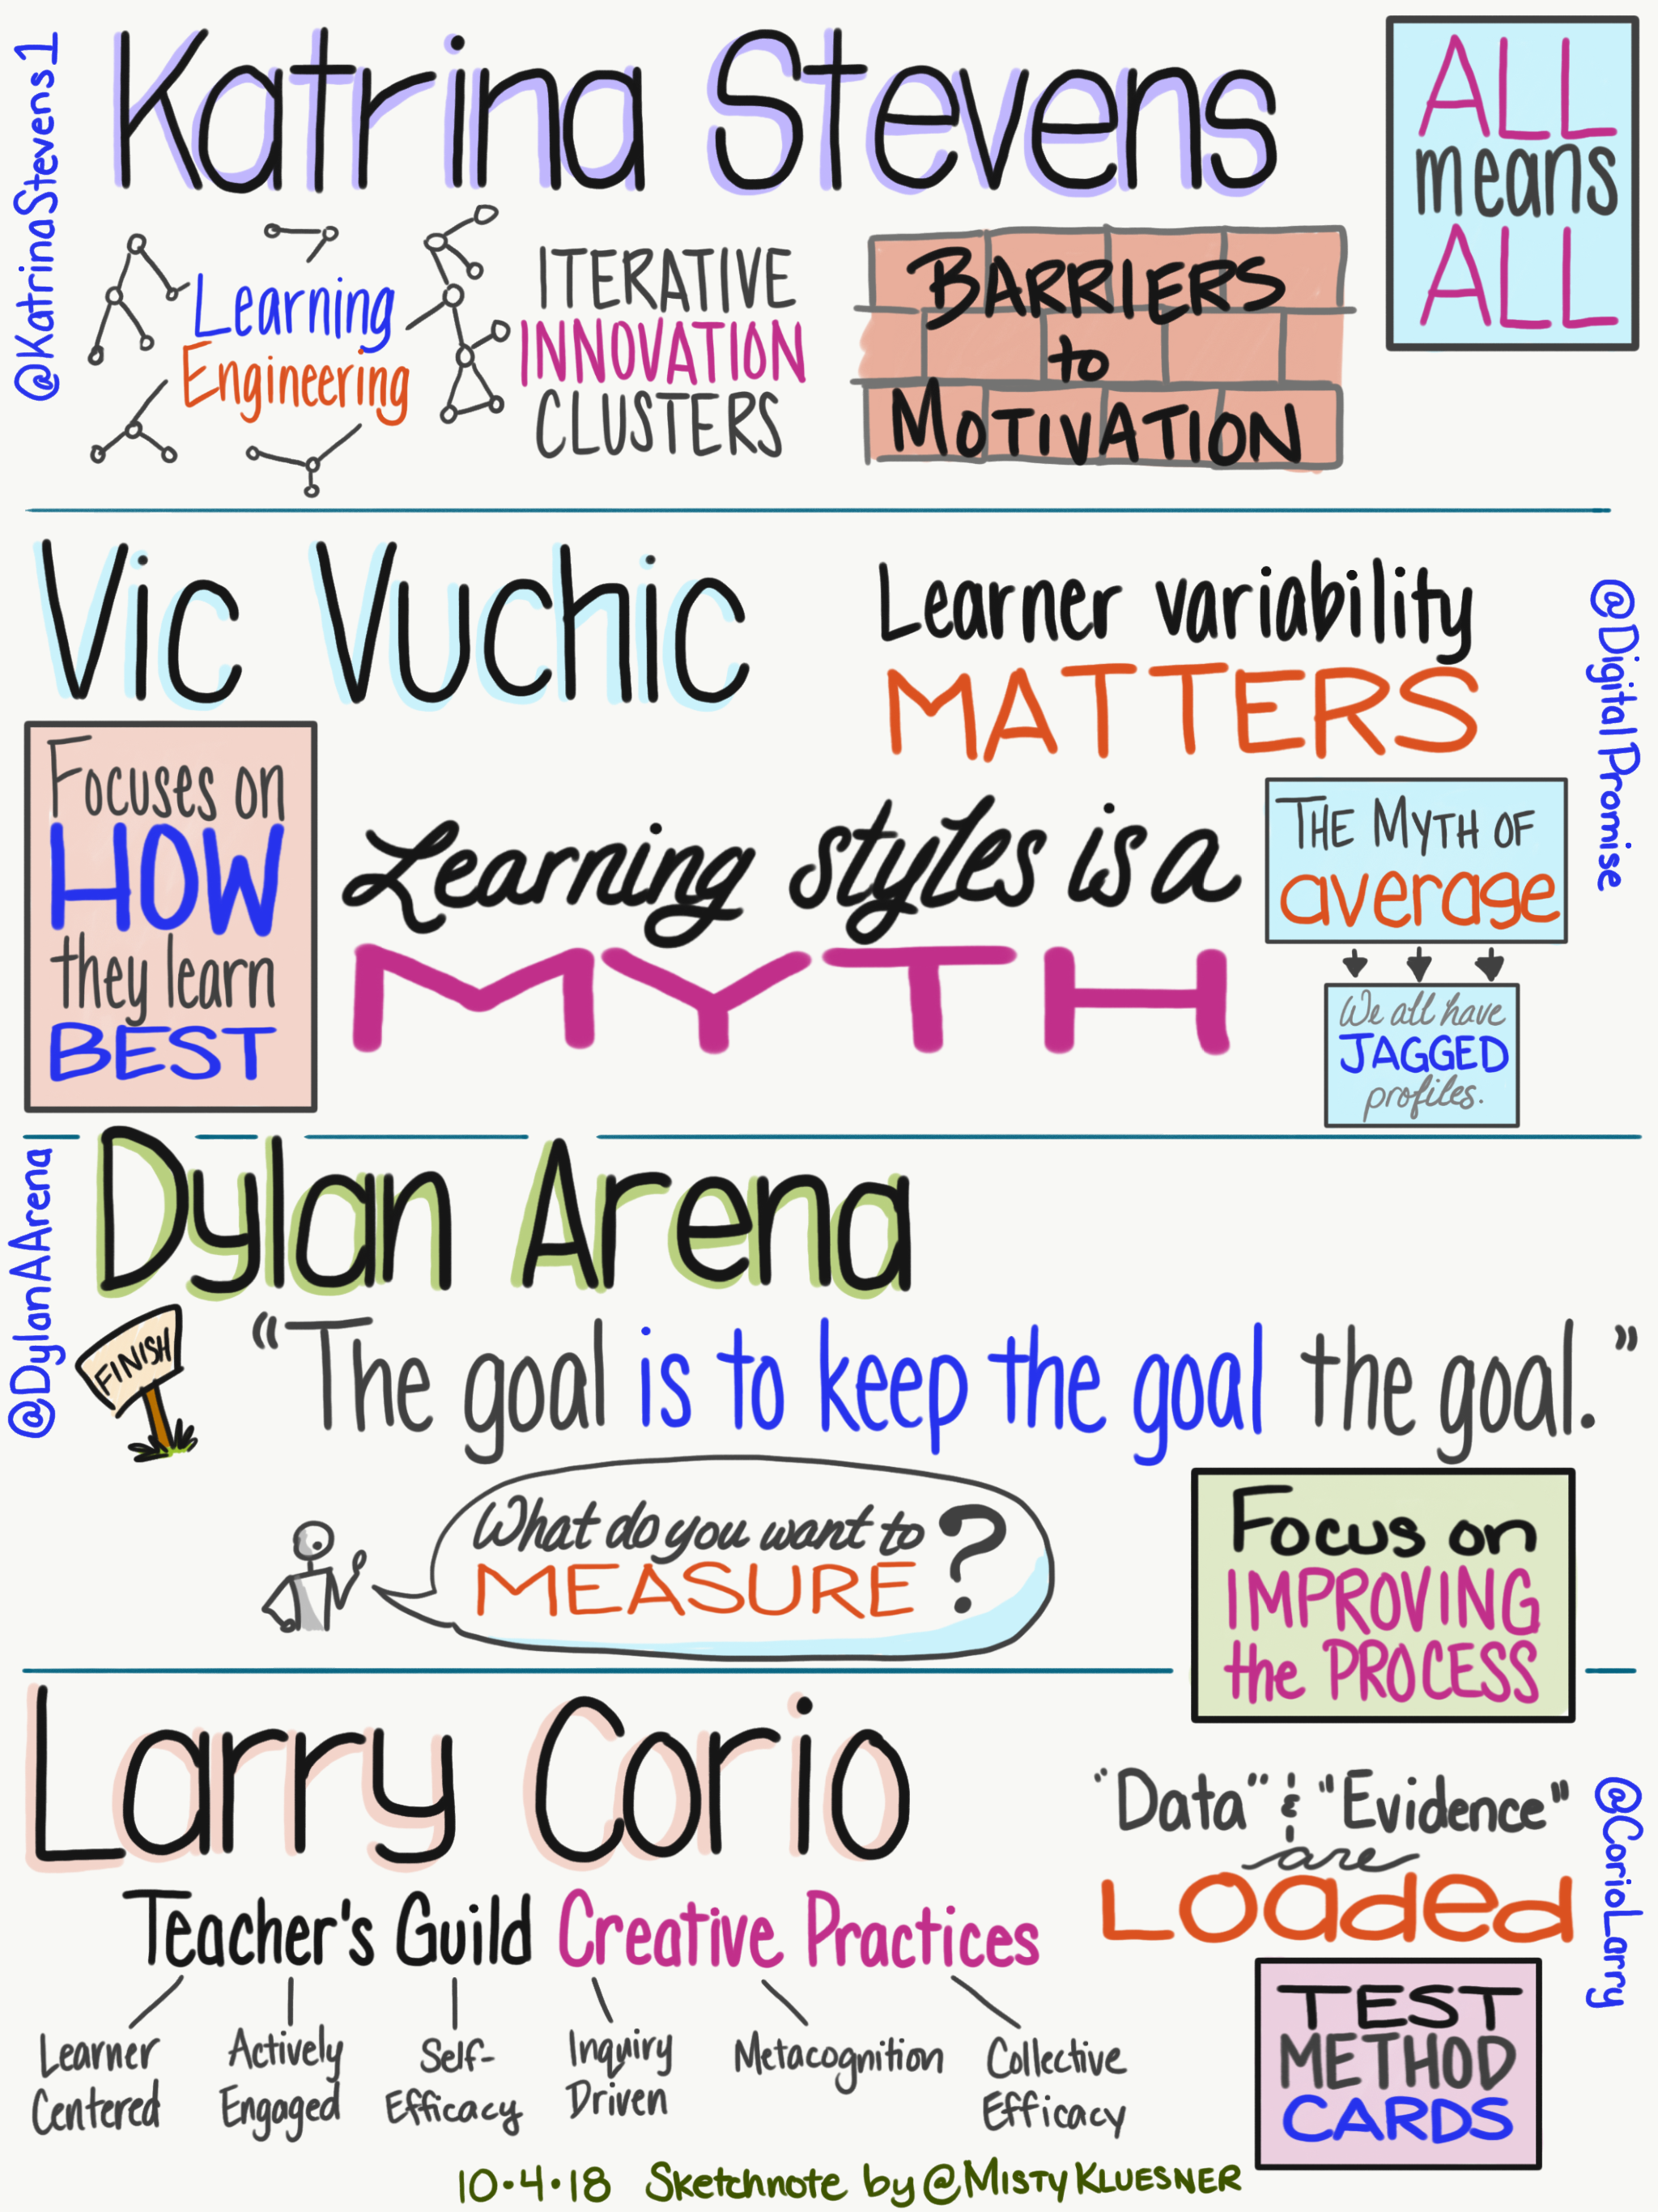 @KatrinaStevens1
Katrina Stevens
ALL
means
ALL
Learning
Engineering
ITERATIVE
INNOVATION
CLUSTERS
BARRIERS
to
MOTIVATION
Vic Vuchic
@DigitalPromise
Learner variability
MATTERS
Focuses on
HOW
they learn
BEST
Learning styles is a
MYTH
THE MYTH OF
average
We all have
JAGGED
profiles.
@DylanAArena
Dylan Arena
FINISH
“The goal is to keep the goal the goal.”
What do you want to
MEASURE?
Focus on
IMPROVING
the PROCESS
Larry Corio
@CorioLarry
"Data" & "Evidence"
are
LOADED
Teacher's Guild Creative Practices
Learner
Centered
Actively
Engaged
Self-
Efficacy
Inquiry
Driven
Metacognition
Collective
Efficacy
TEST
METHOD
CARDS
10.4.18 Sketchnote by @MISTYKLUESNER